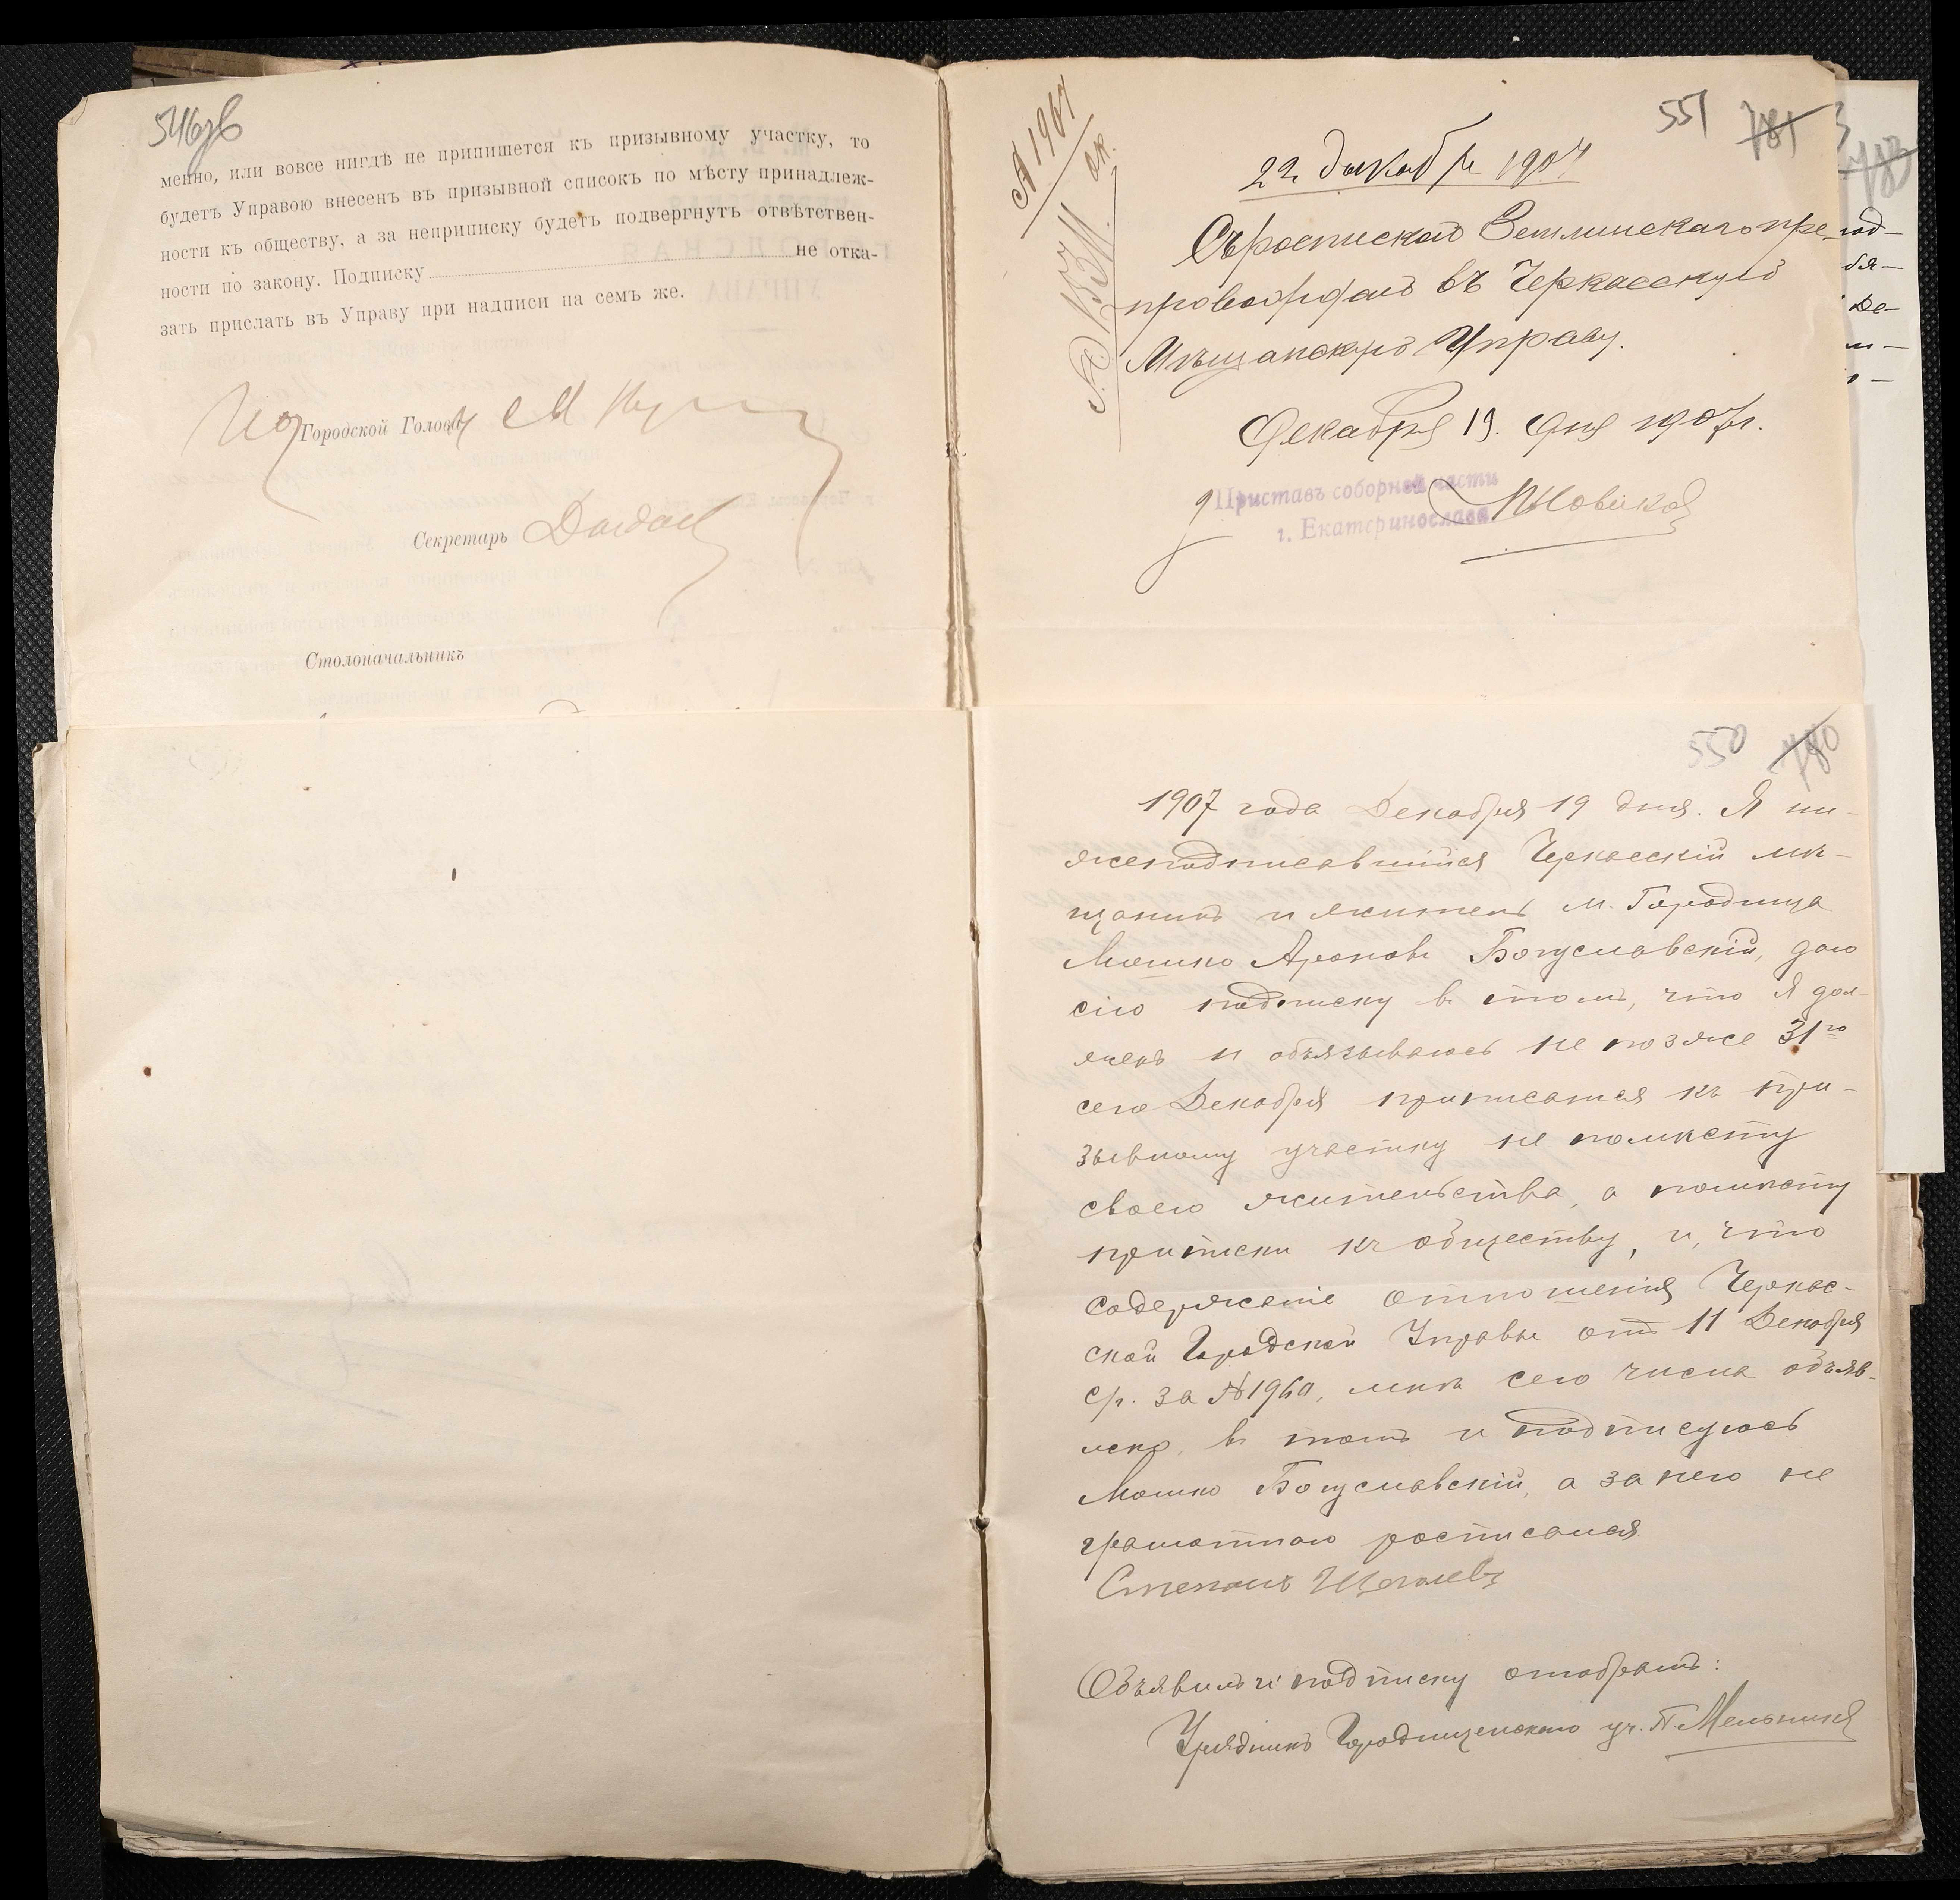 546об
менно, или вовсе нигдѣ не припишется къ призывному участку, то
будетъ Управою внесенъ въ призывной списокъ по мѣсту принадлеж-
ности къ обществу, а за неприписку будетъ подвергнутъ отвѣтствен-
ности по закону. Подписку не отка-
зать прислать въ Управу при надписи на семъ же.
Городской Голова
Секретарь
Столоначальникъ
551 781
22 декабря 1907
Съ роспискою препровождаю въ Черкасскую
Мѣщанскую Управу.
Декабря 19 дня 1907 г.
Приставъ соборной части
г. Екатеринослава
Новиков
550 780
1907 года Декабря 19 дня. Я ни-
жеподписавшійся Черкасскій мѣ-
щанинъ и житель м. Городища
Мошко Ароновъ Богуславскій, даю
сію подписку въ томъ, что я дол-
женъ и обязываюсь не позже 31го
сего Декабря приписатся къ при-
зывному участку не помѣсту
своего жительства, а помѣсту
приписки къ обществу, и, что
содержаніе отношенія Черкас-
ской Городской Управы отъ 11 Декабря
с/г. за № 1960, мнѣ сего числа объяв-
лено, въ томъ и подписуюсь
Мошко Богуславскій, а за него не
грамотного росписался
Степанъ Щеголевъ
Объявилъ и подписку отобралъ:
Урядникъ Городищенскаго уч. П. Мельникъ